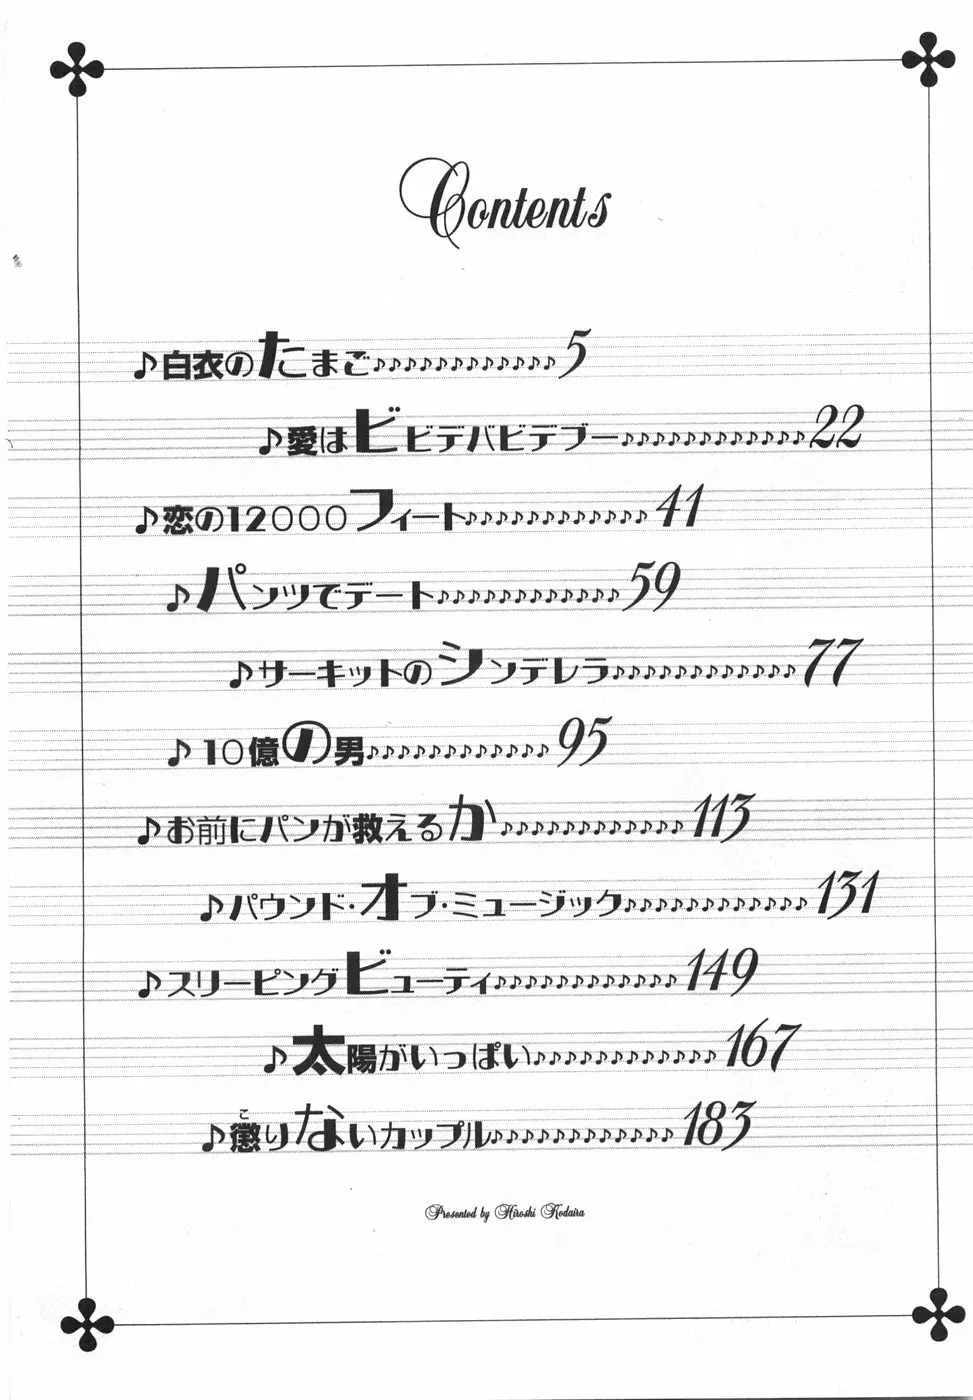 Contents
♪白衣のたまご♪♪♪♪♪♪♪♪♪♪♪♪5
♪愛はビビデバビデブー♪♪♪♪♪♪♪♪♪♪♪♪22
♪恋の12000フィート♪♪♪♪♪♪♪♪♪♪♪♪41
♪パンツでデート♪♪♪♪♪♪♪♪♪♪♪♪59
♪サーキットのシンデレラ♪♪♪♪♪♪♪♪♪♪♪♪77
♪10億の男♪♪♪♪♪♪♪♪♪♪♪♪95
♪お前にパンが救えるか♪♪♪♪♪♪♪♪♪♪♪♪113
♪パウンド・オブ・ミュージック♪♪♪♪♪♪♪♪♪♪♪♪131
♪スリーピングビューティ♪♪♪♪♪♪♪♪♪♪♪♪149
♪太陽がいっぱい♪♪♪♪♪♪♪♪♪♪♪♪167
こ
♪懲りないカップル♪♪♪♪♪♪♪♪♪♪♪♪183
Presented by Hiroshi Kodaira